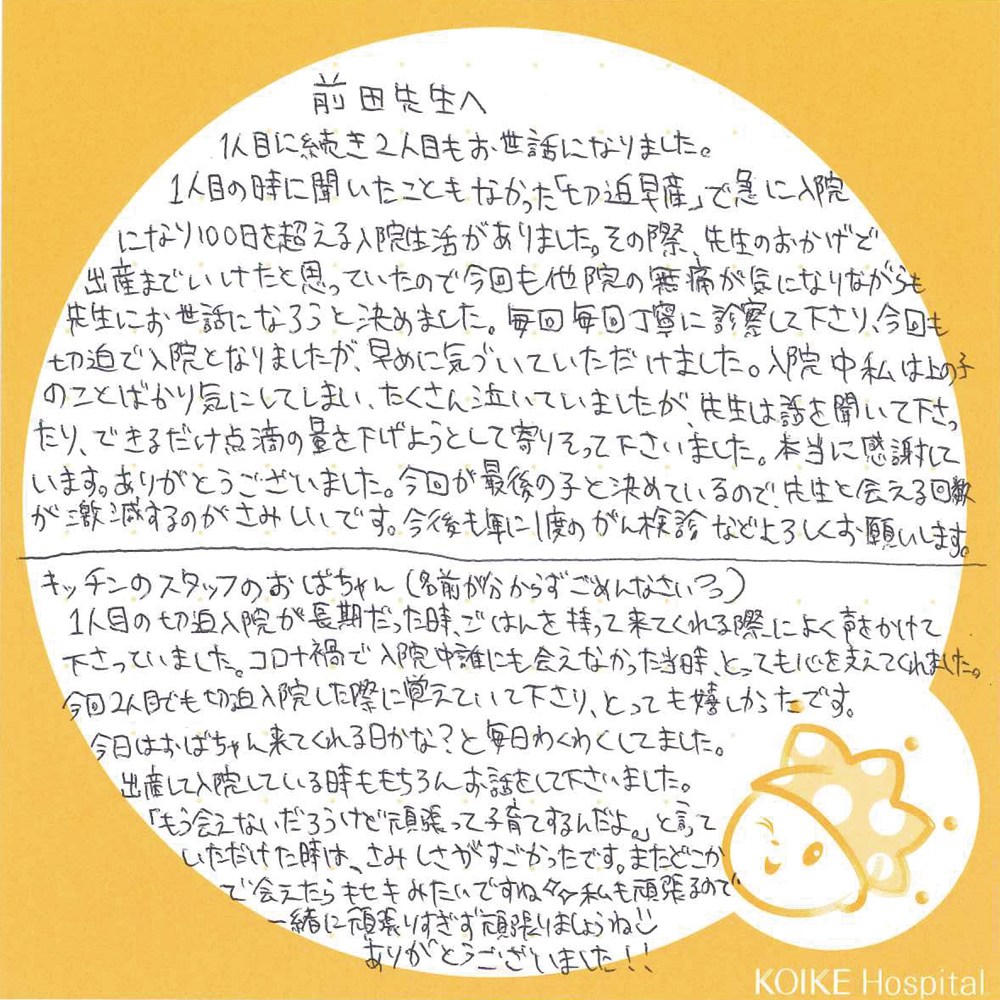 前田先生へ
1人目に続き2人目もお世話になりました。
1人目の時に聞いたこともなかった「切迫早産」で急に入院
になり100日を超える入院生活がありました。その際、先生のおかげで
出産までいけたと思っていたので今回も他院の無痛が気になりながらも
先生にお世話になろうと決めました。毎回毎回丁寧に診察して下さり、今回も
切迫で入院となりましたが、早めに気づいていただけました。入院中私は上の子
のことばかり気にしてしまい、たくさん泣いていましたが、先生は話を聞いて下さっ
たり、できるだけ点滴の量を下げようとして寄りそって下さいました。本当に感謝して
います。ありがとうございました。今回が最後の子と決めているので、先生と会える回数
が激減するのがさみしいです。今後も年に1度のがん検診などよろしくお願いします。
キッチンのスタッフのおばちゃん(名前が分からずごめんなさい)
1人目の切迫入院が長期だった時、ごはんを持って来てくれる際によく声をかけて
下さっていました。コロナ禍で入院中誰にも会えなかった当時、とっても心を支えてくれました。
今回2人目でも切迫入院した際に覚えていて下さり、とっても嬉しかったです。
今日はおばちゃん来てくれる日かな?と毎日わくわくしてました。
出産して入院している時ももちろんお話をして下さいました。
「もう会えないだろうけど頑張って子育てするんだよ。」と言って
いただけた時は、さみしさがすごかったです。またどこか
で会えたらキセキみたいですね☆☆私も頑張るので
一緒に頑張りすぎず頑張りましょうね
ありがとうございました!!
KOIKE Hospital